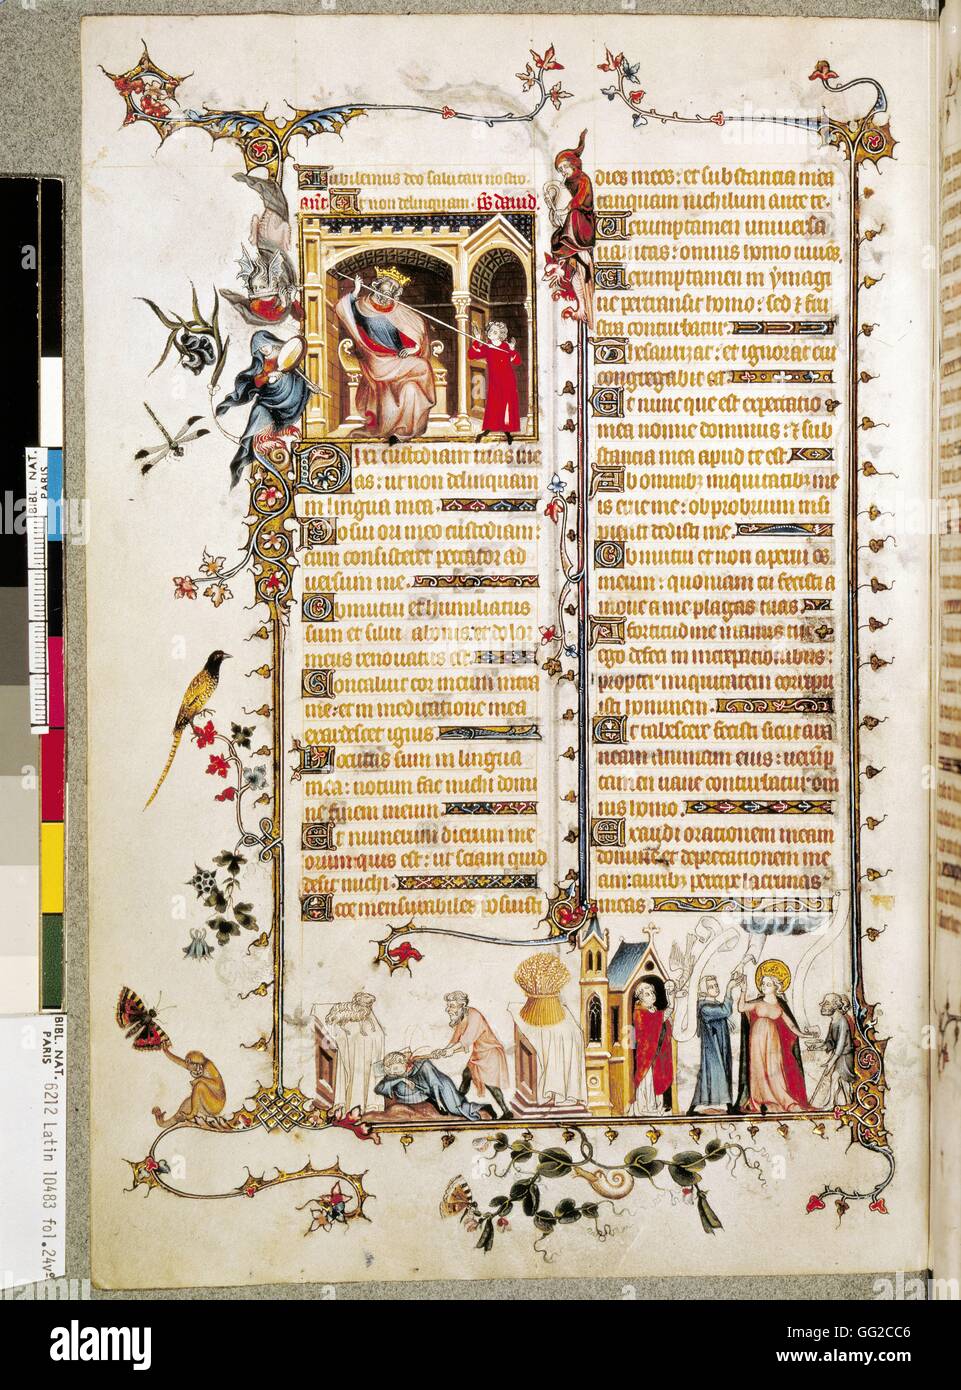 Iubilemus deo salutari nostro.
ant. Ut non delinquam. ps david.
Dixi custodiam vias me
as: ut non delinquam
in lingua mea.
Posui ori meo custodiam:
cum consisteret peccator ad
versum me.
Obmutui et humiliatus
sum et silui a bonis: et dolor
meus renovatus est.
Concaluit cor meum intra
me: et in meditatione mea
exardescet ignis.
Locutus sum in lingua
mea: notum fac michi domi
ne finem meum.
Et numerum dierum me
orum quis est: ut sciam quid
desit michi.
Ecce mensurabiles posuisti
dies meos: et substancia mea
tanquam nichilum ante te.
Verumptamen universa
vanitas: omnis homo vivens.
Verumptamen in ymagi
ne pertransit homo: sed et frus
tra conturbatur.
Thesaurizat: et ignorat cui
congregabit ea.
Et nunc que est expectatio
mea nonne dominus: et sub
stancia mea apud te est.
Ab omnibus iniquitatibus me
is erue me: obprobrium insi
pienti dedisti me.
Obmutui et non aperui os
meum: quoniam tu fecisti a
move a me plagas tuas.
A fortitudine manus tue
ego defeci in increpationibus:
propter iniquitatem corripu
isti hominem.
Et tabescere fecisti sicut ara
neam animam eius: verump
tamen vane conturbatur om
nis homo.
Exaudi orationem meam
domine et deprecationem me
am: auribus percipe lacrimas
meas.
BIBL. NAT.
PARIS
BIBL. NAT.
PARIS
6212 Latin 10483 fol.24v°
alamy
Image ID: GG2CC6
www.alamy.com